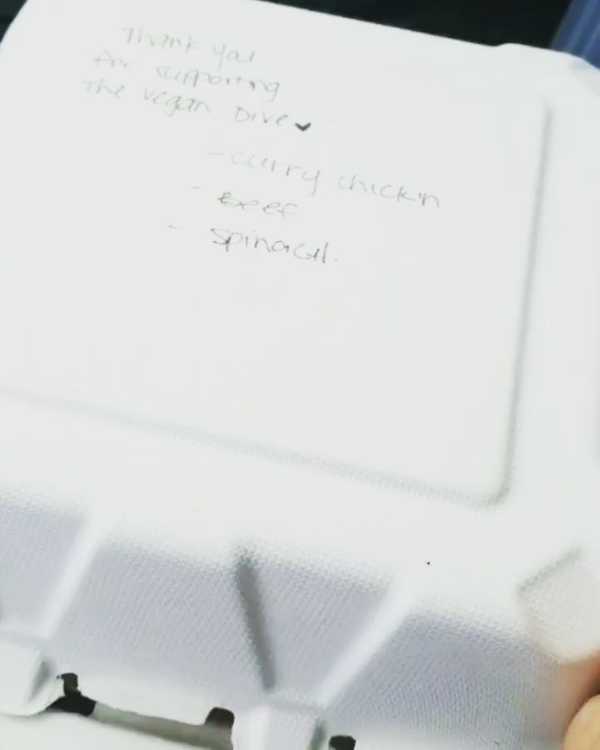 Thank you
for supporting
The vegan Dive
- curry chick'n
- Beef
- spinach.